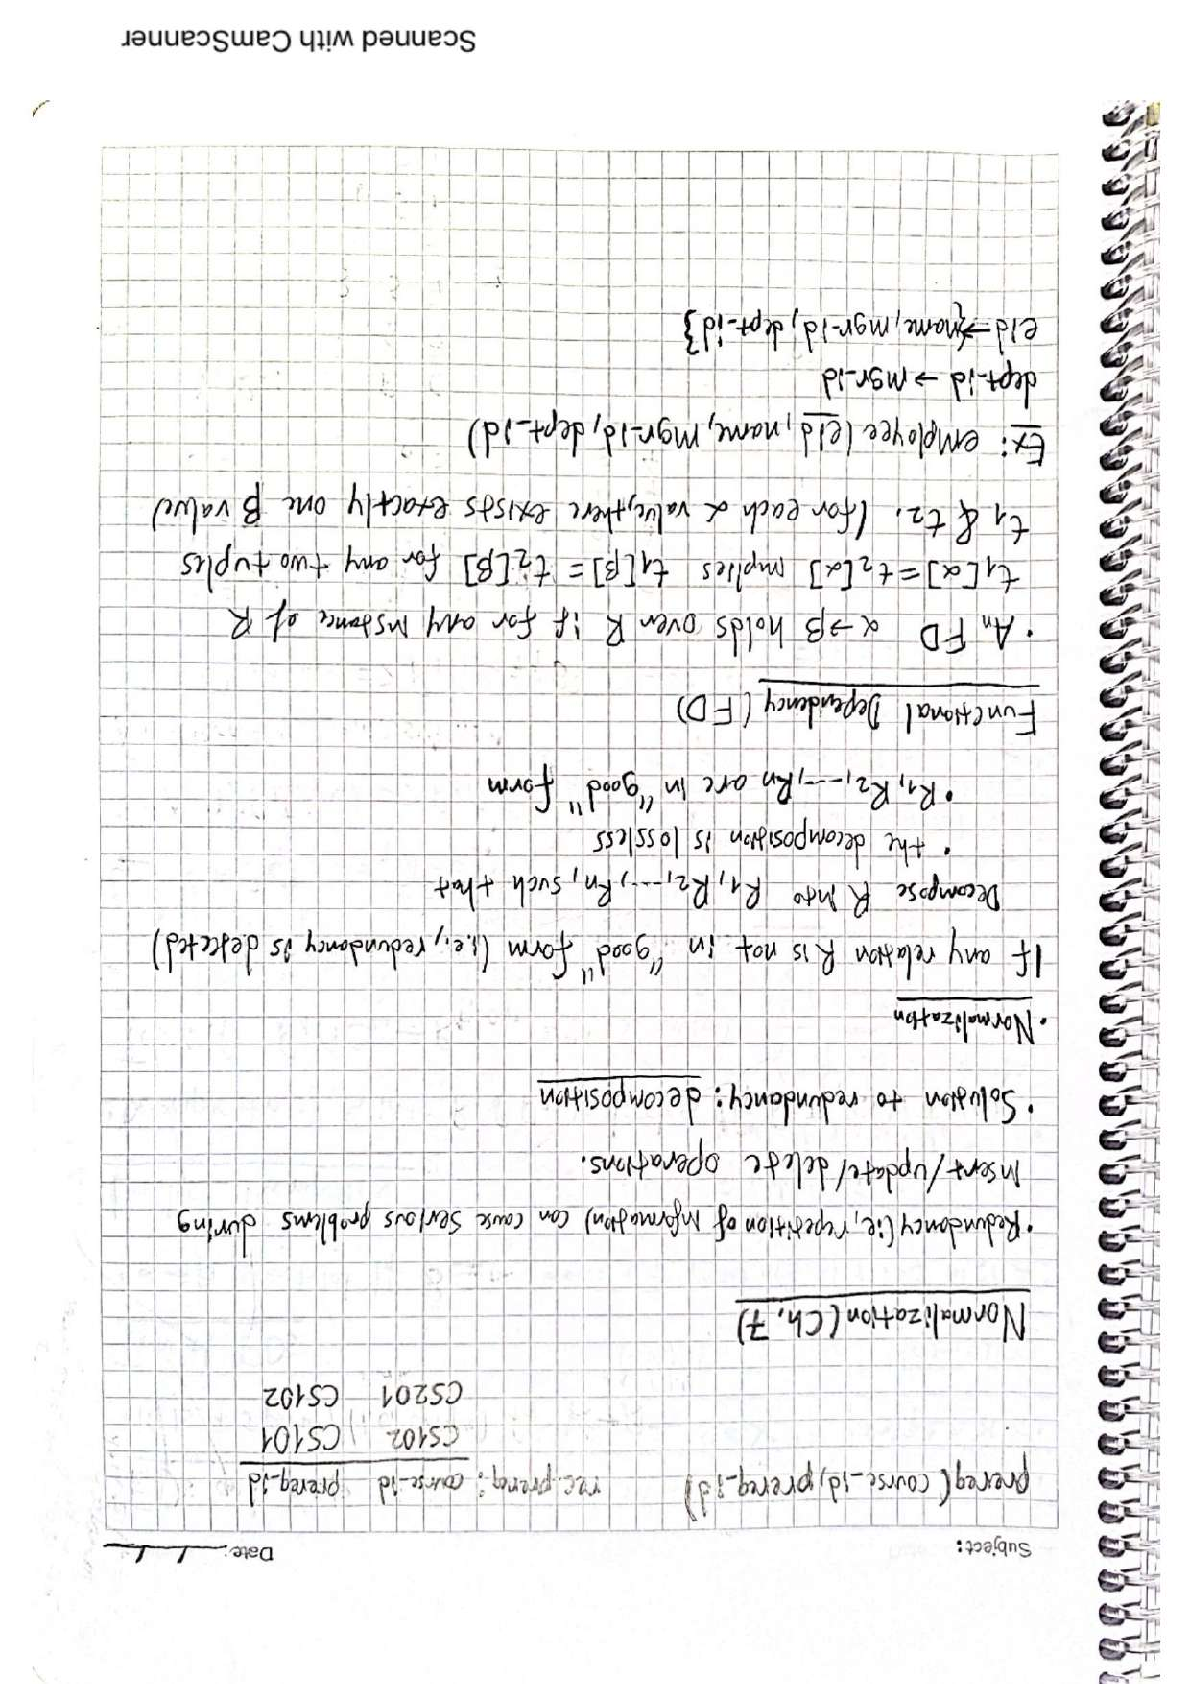 Subject:
Date: / /
prereq(course_id, prereq_id) rec_prereq: course_id prereq_id
CS102 CS101
CS201 CS102
Normalization (Ch. 7)
• Redundancy (ie, repetition of information) can cause serious problems during
insert/update/delete operations.
• Solution to redundancy: decomposition
• Normalization
If any relation R is not in "good" form (i.e., redundancy is detected)
Decompose R into R1, R2, ---, Rn, such that
• the decomposition is lossless
• R1, R2, ---, Rn are in "good" form
Functional Dependency (FD)
• An FD α → β holds over R if for any instance of R
t1[α] = t2[α] implies t1[β] = t2[β] for any two tuples
t1 & t2. (for each α value, there exists exactly one β value)
Ex: employee (eid, name, mgr-id, dept-id)
dept-id → mgr-id
eid → {name, mgr-id, dept-id}
Scanned with CamScanner